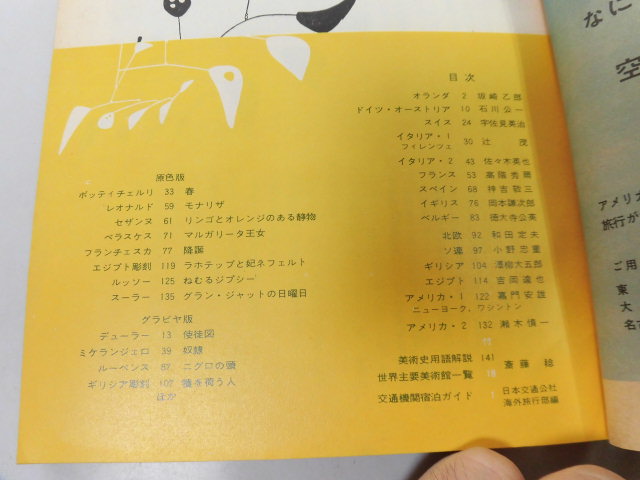 目次
オランダ 2 坂崎乙郎
ドイツ・オーストリア 10 石川公一
スイス 24 宇佐見英治
イタリア・1
フィレンツェ 30 辻茂
イタリア・2 43 佐々木英也
フランス 53 高階秀爾
スペイン 68 神吉敬三
イギリス 76 岡本謙次郎
ベルギー 83 徳大寺公英
北欧 92 和田定夫
ソ連 97 小野忠重
ギリシア 104 澤柳大五郎
エジプト 114 吉岡達也
アメリカ・1 122 嘉門安雄
ニューヨーク、ワシントン
アメリカ・2 132 瀬木慎一
美術史用語解説 141 斎藤稔
世界主要美術館一覧 18
交通機関宿泊ガイド 1 日本交通公社
海外旅行部編
原色版
ボッティチェルリ 33 春
レオナルド 59 モナリザ
セザンヌ 61 リンゴとオレンジのある静物
ベラスケス 71 マルガリータ王女
フランチェスカ 77 降誕
エジプト彫刻 119 ラホテップと妃ネフェルト
ルッソー 125 ねむるジプシー
スーラー 135 グラン・ジャットの日曜日
グラビヤ版
デューラー 13 使徒図
ミケランジェロ 39 奴隷
ルーベンス 87 ニグロの頭
ギリシア彫刻 107 犢を荷う人
ほか
なに
空
アメリカ
旅行が
ご用
東
大
名古